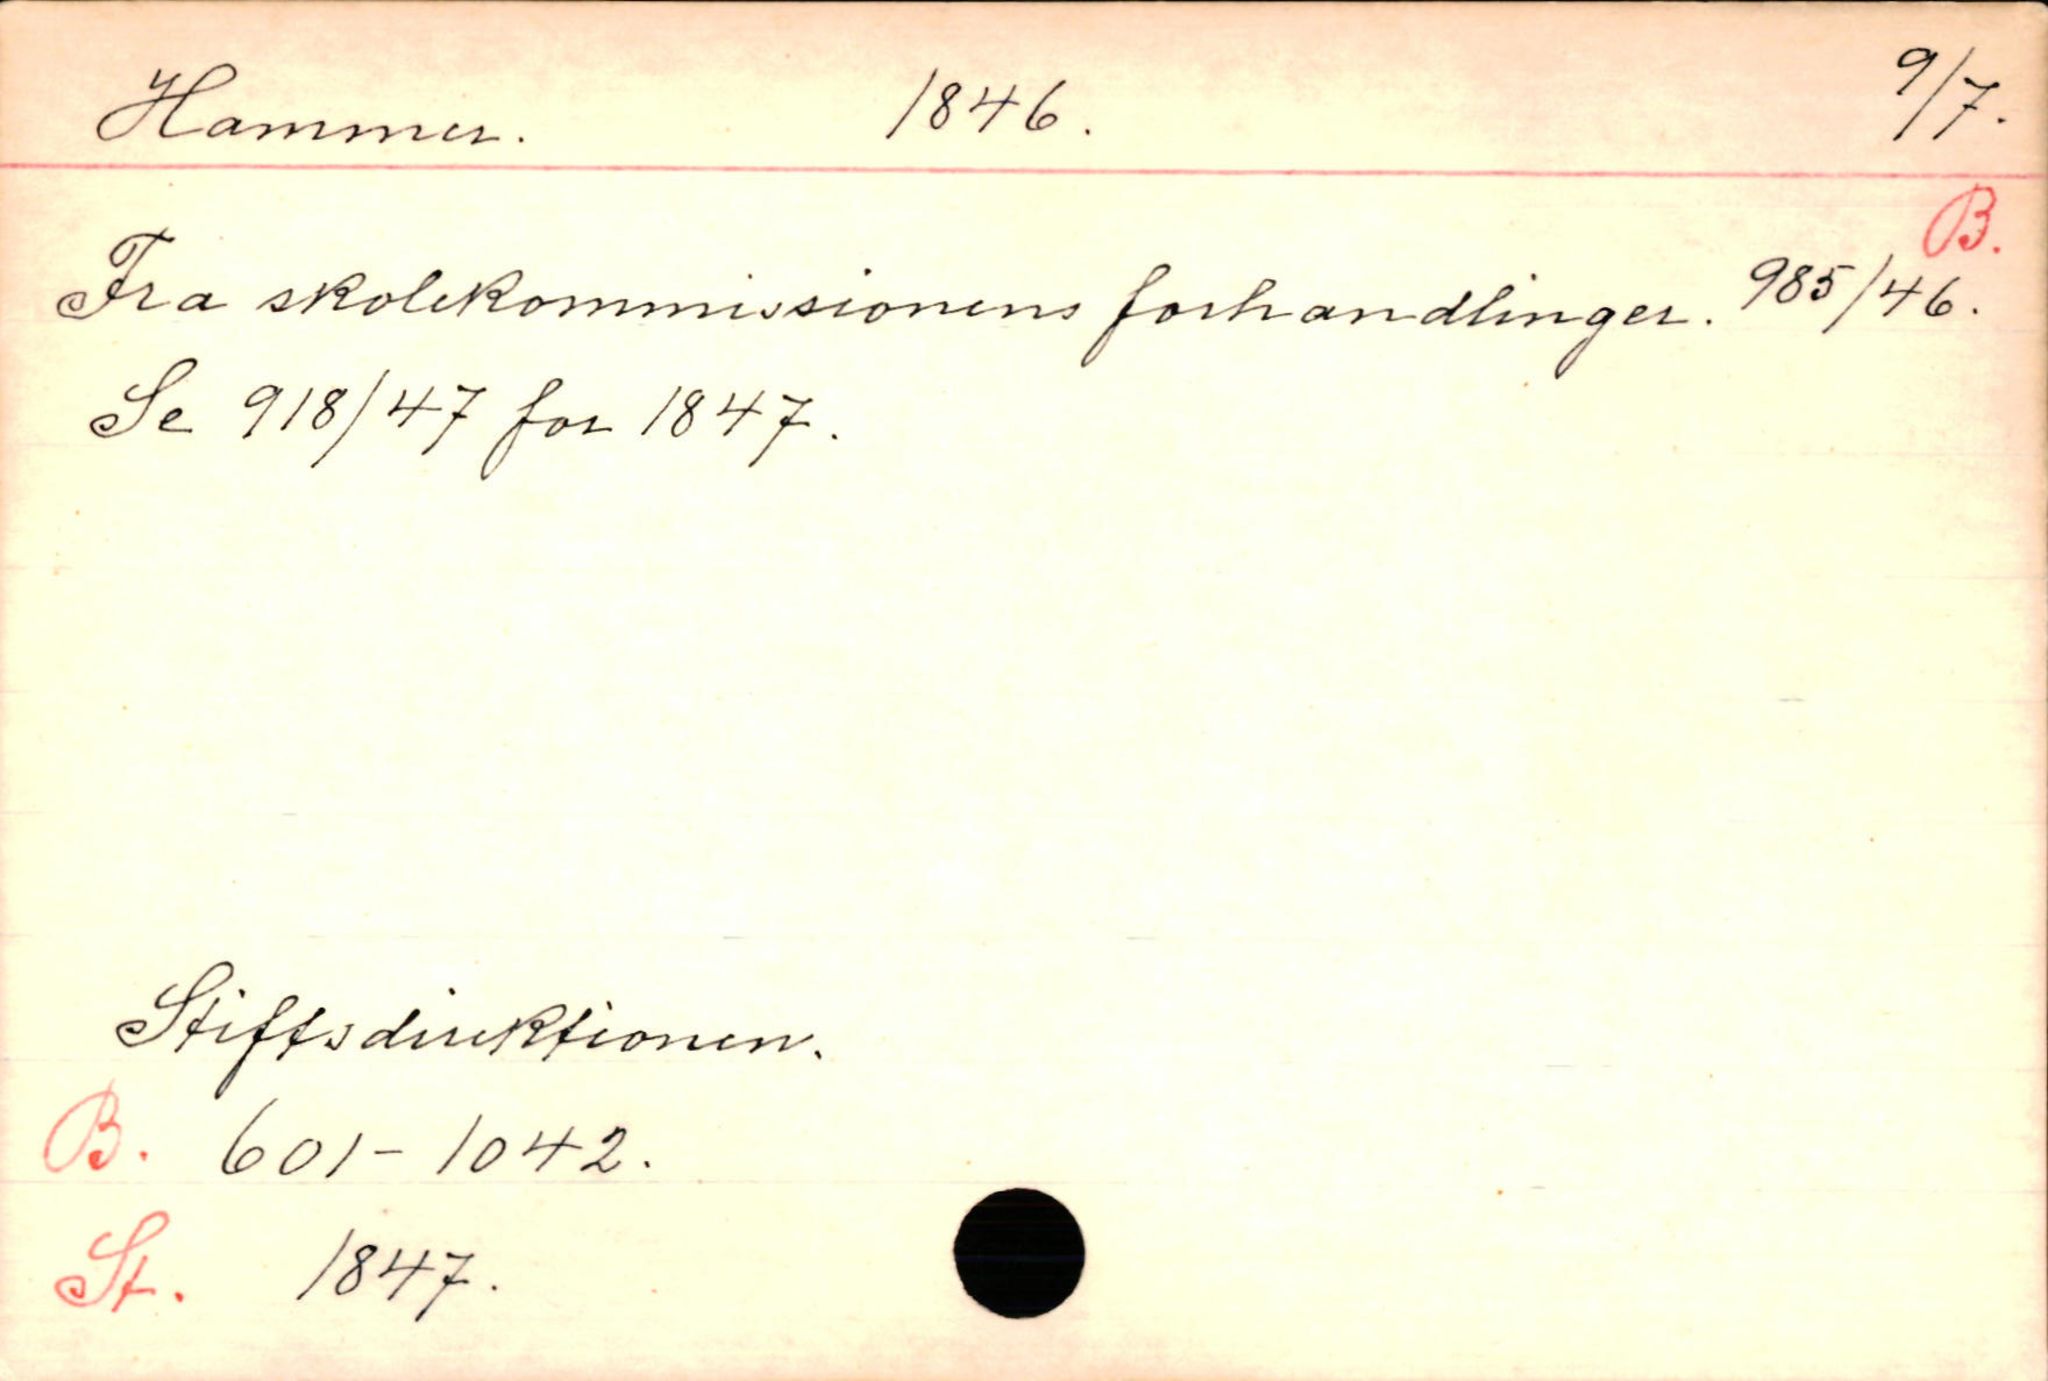 Hammer. 1846. 9/7.
B.
Fra skolekommissionens forhandlinger. 985/46.
Se 918/47 for 1847.
Stiftsdirektionen.
B. 601-1042.
St. 1847.